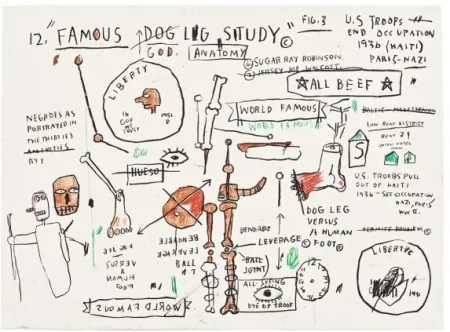 12. "FAMOUS DOG LEG STUDY" ©
GOD. ANATOMY
FIG. 3
U.S. TROOPS
END OCCUPATION
1936 (HAITI)
PARIS-NAZI
SUGAR RAY ROBINSON.
JERSEY JOE WALCOTT.
ALL BEEF
LIBERTY
IN
GOD
TRUST
1951
D
WORLD FAMOUS
WORLD FAMOUS
LOW RENT DISTRICT
RENT 29
S
NEGROES AS
PORTRAYED IN
THE THIRTIES
HUESO
U.S. TROOPS PULL
OUT OF HAITI
1936 - SEE OCCUPATION
NAZI, PARIS
WW II.
DOG LEG
VERSUS
A HUMAN
© FOOT ©
BENDABLE
LEVERAGE
BALL
JOINT
BENDABLE
LEVERAGE
BALL
DOG LEG
VERSUS
A HUMAN
FOOT
ALL SEEING
EYE OF TROOF
12
LIBERTY
WORLD FAMOUS